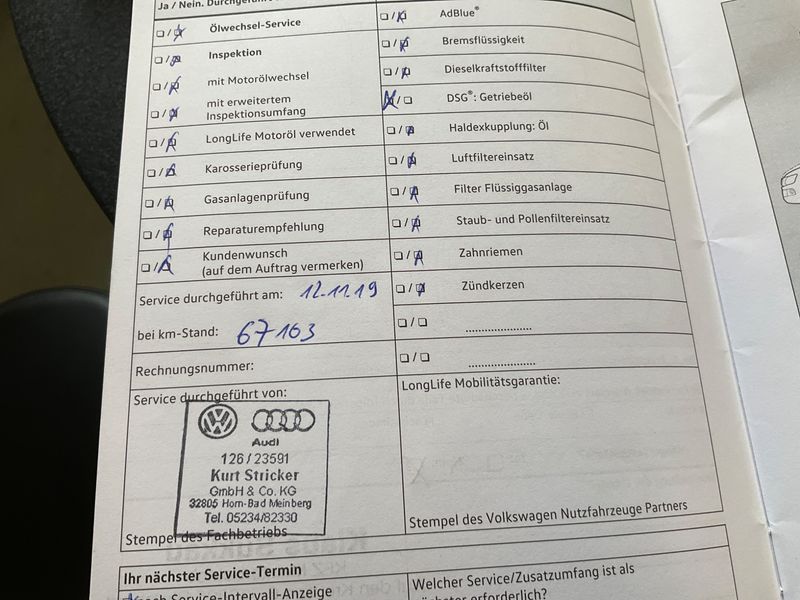 Ja / Nein. Durchgeführt
Ölwechsel-Service
Inspektion
mit Motorölwechsel
mit erweitertem
Inspektionsumfang
LongLife Motoröl verwendet
Karosserieprüfung
Gasanlagenprüfung
Reparaturempfehlung
Kundenwunsch
(auf dem Auftrag vermerken)
Service durchgeführt am: 12.11.19
bei km-Stand: 67103
Rechnungsnummer:
Service durchgeführt von:
Audi
126/23591
Kurt Stricker
GmbH & Co. KG
32805 Horn-Bad Meinberg
Tel. 05234/82330
Stempel des Fachbetriebs
AdBlue®
Bremsflüssigkeit
Dieselkraftstofffilter
DSG®: Getriebeöl
Haldexkupplung: Öl
Luftfiltereinsatz
Filter Flüssiggasanlage
Staub- und Pollenfiltereinsatz
Zahnriemen
Zündkerzen
LongLife Mobilitätsgarantie:
Stempel des Volkswagen Nutzfahrzeuge Partners
Ihr nächster Service-Termin
nach Service-Intervall-Anzeige
Welcher Service/Zusatzumfang ist als
nächster erforderlich?